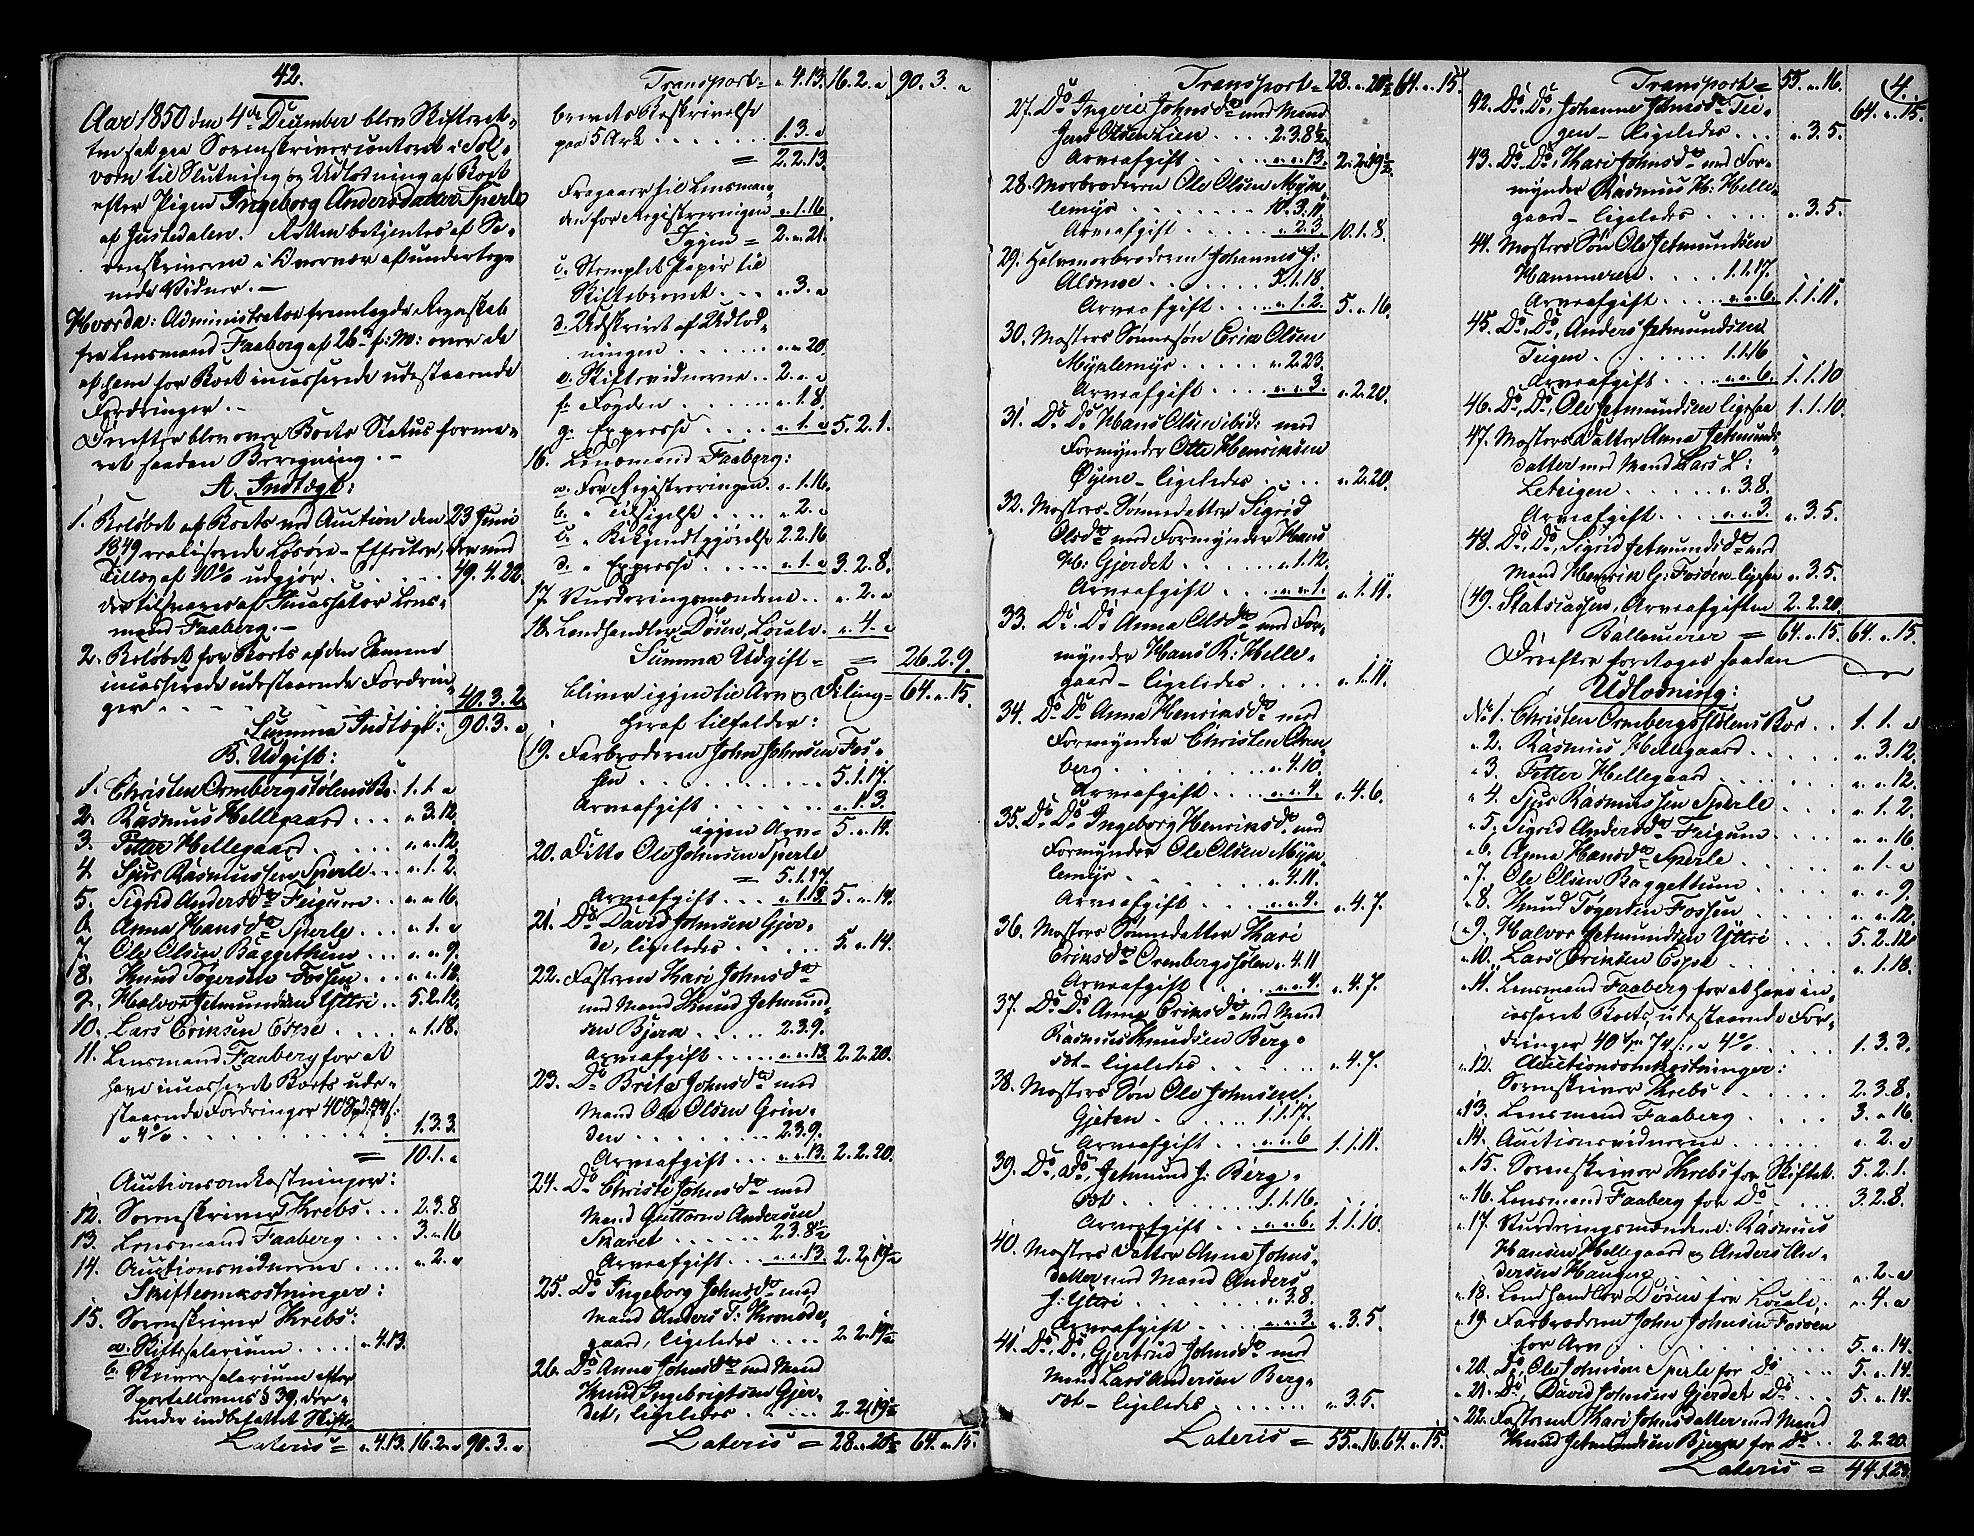 42.
Aar 1850 den 4de December blev Skifteret-
ten sat paa Sorenskrivercontoret i Sol-
vorn til Slutning og Udlodning af Boet
efter Pigen Ingeborg Andersdatter Sperle
af Justedalen. Retten betjentes af So-
renskriveren i Overvær af underteg-
nede Vidner. –
Hvorda: Administrator fremlagde Regnskab
fra Lensmand Faaberg af 26de f: M: over de
af ham for Boet incasserede udestaaende
Fordringer. –
Derefter blev over Boets Status forme-
ret saadan Beregning. –
A. Indtægt:
1. Beløbet af Boets ved Auction den 23 Juni
1849 realiserede Løsøre-Effecter, der med
Tillæg af 10% udgjør . . . . . 49. 4. 22.
der tilsvares af Incassator Lens-
mand Faaberg. –
2. Beløbet for Boets af den Samme
incasserede udestaaende Fordrin-
ger . . . . . 40. 3. 2.
Summa Indtægt: 90. 3. "
B. Udgift:
1. Christen Ornbergstølens Bo: 1. 1. "
2. Rasmus Hellegaard . . . " 3. 12.
3. Petter Hellegaard . . . " " 12.
4. Sjur Rasmussen Sperle . . . " 1. 2.
5. Sigrid Andersdr Feigum . . " " 16.
6. Anna Hansdr Sperle . . . " 1. "
7. Ole Olsen Baggethun . . . " " 9.
8. Knud Tøgersen Fossen . . . " " 12.
9. Halvor Jetmundsen Yttri . . 5. 2. 12.
10. Lars Eriksen Espe . . . . " 1. 18.
11. Lensmand Faaberg for at
have incasseret Boets ude-
staaende Fordringer 40 Spd 74 s:
" 4% . . . . . 1. 3. 3.
= 10. 1. "
Auctionsomkostninger:
12. Sorenskriver Krebs . . . 2. 3. 8
13. Lensmand Faaberg . . . 3. " 16
14. Auctionsvidnerne . . . . " 2. "
Skifteomkostninger:
15. Sorenskriver Krebs:
a. Skiftesalarium . . . . " 4. 13.
b. Skriversalarium efter
Sportellovens § 39, der-
under indbefattet Skifte-
Lateris = " 4. 13. 16. 2. " 90. 3. "
Transport = " 4. 13. 16. 2. " 90. 3. "
brevets Beskrivelse
paa 5 Ark . . . . . 1. 3. "
= 2. 2. 13.
Fragaar til Lensman-
den for Registreringen " 1. 16
Igjen = 2. " 21.
c. Stemplet Papir til
Skiftebrevet . . . " 3. "
d. Udskrivt af Udlod-
ningen . . . . . " " 20.
e. Skiftevidnerne . . 2. " "
f. Fogden . . . . . " 1. 8.
g. Expresse . . . . " 1. " 5. 2. 1.
16. Lensmand Faaberg:
a. For Registreringen . " 1. 16.
b. " Tilsigelse . . . . " 2. "
c. " Bekjendtgjørelse 2. 2. 16
d. " Expresse . . . . " 1. " 3. 2. 8.
17. Vurderingsmændene . . " 2. "
18. Landhandler Døsen, Locale. " 4. "
Summa Udgift = = 26. 2. 9.
bliver igjen til Arv og Deling = 64. " 15.
heraf tilfalder:
19. Farbroderen John Johnsen Fos-
sen . . . . . 5. 1. 17.
Arveafgift . . . . . " 1. 3.
igjen Arv = 5. " 14.
20. Ditto Ole Johnsen Sperle
= 5. 1. 17
Arveafgift . . . . " 1. 3. 5. " 14.
21. Do David Johnsen Gjer-
de, ligeledes . . . . . 5. " 14.
22. Fasteren Kari Johnsdr
med Mand Knud Jetmund-
sen Bjerk . . . . 2. 3. 9.
Arveafgift . . . . . " " 13. 2. 2. 20.
23. Do Brita Johnsdr med
Mand Ole Olsen Grin-
den . . . . . 2. 3. 9.
Arveafgift . . . " " 13. 2. 2. 20.
24. Do Christi Johnsdr med
Mand Guttorm Andersen
Skaret . . . . . 2. 3. 8½
Arveafgift . . . " " 13. 2. 2. 19½
25. Do Ingeborg Johnsdr med
Mand Anders T: Kronde-
gaard, ligeledes . . . . 2. 2. 19½
26. Do Anna Johnsdr med Mand
Knud Ingebrigtsen Gjer-
det, ligeledes . . . . 2. 2. 19½
Lateris = 28. " 20½ 64. " 15.
Transport = 28. " 20½ 64. " 15.
27. Do Ingeri Johnsdr med Mand
Jens Olsen Lien . . . 2. 3. 8½
Arveafgift . . . . . " " 13. 2. 2. 19½
28. Morbroderen Ole Olsen Myk-
lemyr . . . . . 10. 3. 11.
Arveafgift . . . . . " 2. 3. 10. 1. 8.
29. Halvmorbroderen Johannes J:
Alsmoe . . . . . 5. 1. 18.
Arveafgift . . . . . " 1. 2. 5. " 16.
30. Mosters Sønnesøn Erik Olsen
Myklemyr . . . . . " 2. 23.
Arveafgift . . . . . " " 3. " 2. 20.
31. Do Do Hans Olsen ibid: med
Formynder Otte Henriksen
Øyene – ligeledes . . . . " 2. 20.
32. Mosters Sønnedatter Sigrid
Olsdr med Formynder Hans
H: Gjerdet . . . . . " 1. 12.
Arveafgift . . . . " " 1. " 1. 11.
33. Do Do Anna Olsdr med For-
mynder Hans R: Helle-
gaard – ligeledes . . . . " 1. 11.
34. Do Do Anna Henriksdr med
Formynder Christen Orn-
berg . . . . . " 4. 10
Arveafgift . . . . " " 4. " 4. 6.
35. Do Do Ingeborg Henriksdr med
Formynder Ole Olsen Myk-
lemyr . . . . . " 4. 11.
Arveafgift . . . . " " 4. " 4. 7.
36. Mosters Sønnedatter Kari
Eriksdr Ornbergstølen " 4. 11
Arveafgift . . . . " " 4. " 4. 7.
37. Do Do Anna Eriksdr med Mand
Rasmus Knudsen Berg-
set – ligeledes . . . . . " 4. 7.
38. Mosters Søn Ole Johnsen
Gjeten . . . . . 1. 1. 17.
Arveafgift . . . . " " 6 1. 1. 11.
39. Do, Do, Jetmund J. Berg-
set . . . . . 1. 1. 16.
Arveafgift . . . . " " 6. 1. 1. 10.
40. Mosters Datter Anna Johns-
datter med Mand Anders
J: Yttri . . . . . " 3. 8.
Arveafgift . . . . " " 3 " 3. 5.
41. Do, Do, Gjertrud Johnsdr med
Mand Lars Andersen Berg-
set – ligeledes . . . . . " 3. 5.
Lateris = 55. " 16. 64. " 15.
4.
Transport = 55. " 16. 64. " 15.
42. Do, Do, Johanne Johnsdr Tei-
gen – ligeledes . . . " 3. 5.
43. Do, Do, Kari Johnsdr med For-
mynder Rasmus H: Helle-
gaard – ligeledes . . . . " 3. 5.
44. Mosters Søn Ole Jetmundsen
Hammeren . . . . 1. 1. 17.
Arveafgift . . . . " " 6. 1. 1. 11.
45. Do, Do, Anders Jetmundsen
Teigen . . . . . 1. 1. 16
Arveafgift . . . . " " 6. 1. 1. 10
46. Do, Do, Ole Jetmundsen ligesaa 1. 1. 10.
47. Mosters Datter Anna Jetmunds-
datter med Mand Lars L:
Leteigen . . . . . " 3. 8.
Arveafgift . . . . " " 3. " 3. 5.
48. Do, Do, Sigrid Jetmundsdr med
Mand Henrik G: Fosøen – ligesaa " 3. 5.
49. Statscassen, Arveafgiften 2. 2. 20.
Ballancerer = 64. " 15. 64. " 15.
Derefter foretoges saadan
Udlodning:
No 1. Christen Ornbergstølens Bo . . 1. 1. "
" 2. Rasmus Hellegaard . . . " 3. 12.
" 3. Petter Hellegaard . . . . " " 12.
" 4. Sjur Rasmussen Sperle . . . " 1. 2.
" 5. Sigrid Andersdr Feigum . . . " " 16
" 6. Anna Hansdr Sperle . . . . " 1. "
" 7. Ole Olsen Baggethun . . . . " " 9.
" 8. Knud Tøgersen Fossen . . . " " 12.
" 9. Halvor Jetmundsen Yttri . . . 5. 2. 12
" 10. Lars Eriksen Espe . . . . " 1. 18.
" 11. Lensmand Faaberg for at have in-
casseret Boets udestaaende For-
dringer 40 Spd 74 s: " 4% . . . . 1. 3. 3.
" 12. Auctionsomkostninger:
Sorenskriver Krebs . . . . . 2. 3. 8.
" 13. Lensmand Faaberg . . . . 3. " 16
" 14. Auctionsvidnerne . . . . . " 2. "
" 15. Sorenskriver Krebs for Skiftet. 5. 2. 1.
" 16. Lensmand Faaberg for Do . . . 3. 2. 8.
" 17. Vurderingsmændene: Rasmus
Hansen Hellegaard og Anders An-
dersen Haugen . . . . . " 2. "
" 18. Landhandler Døsen for Locale. " 4. "
" 19. Farbroderen John Johnsen Fosøen
for Arv . . . . . 5. " 14.
" 20. Do, Ole Johnsen Sperle for Do . . 5. " 14.
" 21. Do, David Johnsen Gjerdet Do . . . 5. " 14.
" 22. Fasteren Kari Johnsdatter med Mand
Knud Jetmundsen Bjerk for Do . . 2. 2. 20.
Lateris = 44. 1. 23.